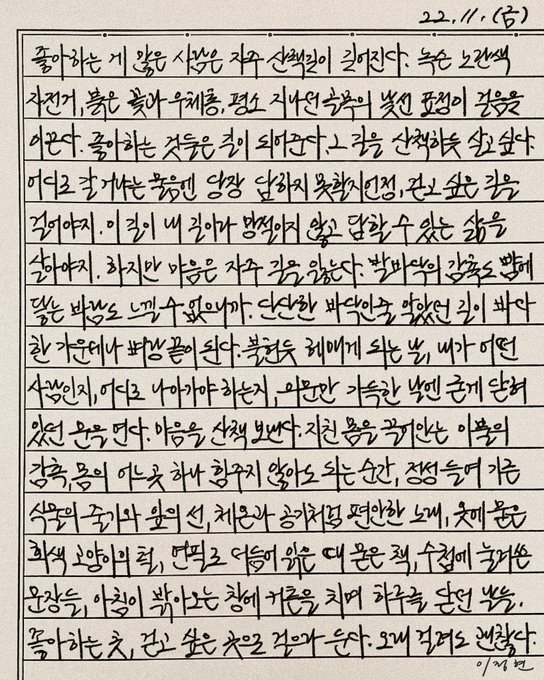 22.11.(금)
좋아하는 게 많은 사람은 자주 산책길이 길어진다. 녹슨 노란색
자전거, 붉은 꽃과 우체통, 평소 지나던 골목의 낯선 표정이 걸음을
이끈다. 좋아하는 것들은 길이 되어준다. 그 길을 산책하듯 살고 싶다
어디로 갈 거냐는 물음엔 당장 답하지 못할지언정, 걷고 싶은 길을
걸어야지. 이 길이 내 길이라 망설이지 않고 답할 수 있는 삶을
살아야지. 하지만 마음은 자주 길을 잃는다. 발바닥의 감촉도 뺨에
닿는 바람도 느낄 수 없으니까. 단단한 바닥인줄 알았던 길이 바다
한 가운데나 벼랑 끝이 된다. 불현듯 헤매게 되는 날, 내가 어떤
사람인지, 어디로 나아가야 하는지, 의문만 가득한 날엔 굳게 닫혀
있던 문을 연다. 마음을 산책 보낸다. 지친 몸을 끌어안는 이불의
감촉, 몸의 어느 곳 하나 힘주지 않아도 되는 순간, 정성 들여 기른
식물의 줄기와 잎의 선, 체온과 공기처럼 편안한 노래, 옷에 묻은
회색 고양이의 털, 연필로 더듬어 읽은 때 묻은 책, 수첩에 눌러쓴
문장들, 아침이 밝아오는 창에 커튼을 치며 하루를 닫던 날들.
좋아하는 곳, 걷고 싶은 곳으로 걸으라 둔다. 오래 걸려도 괜찮다.
이정현